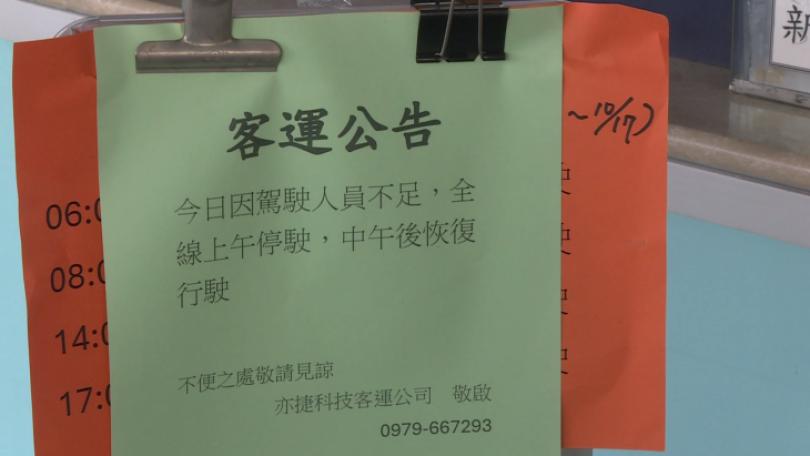 新
~10/17)
客運公告
今日因駕駛人員不足,全
線上午停駛,中午後恢復
行駛
不便之處敬請見諒
亦捷科技客運公司 敬啟
0979-667293
06:0
08:0
14:0
17:0